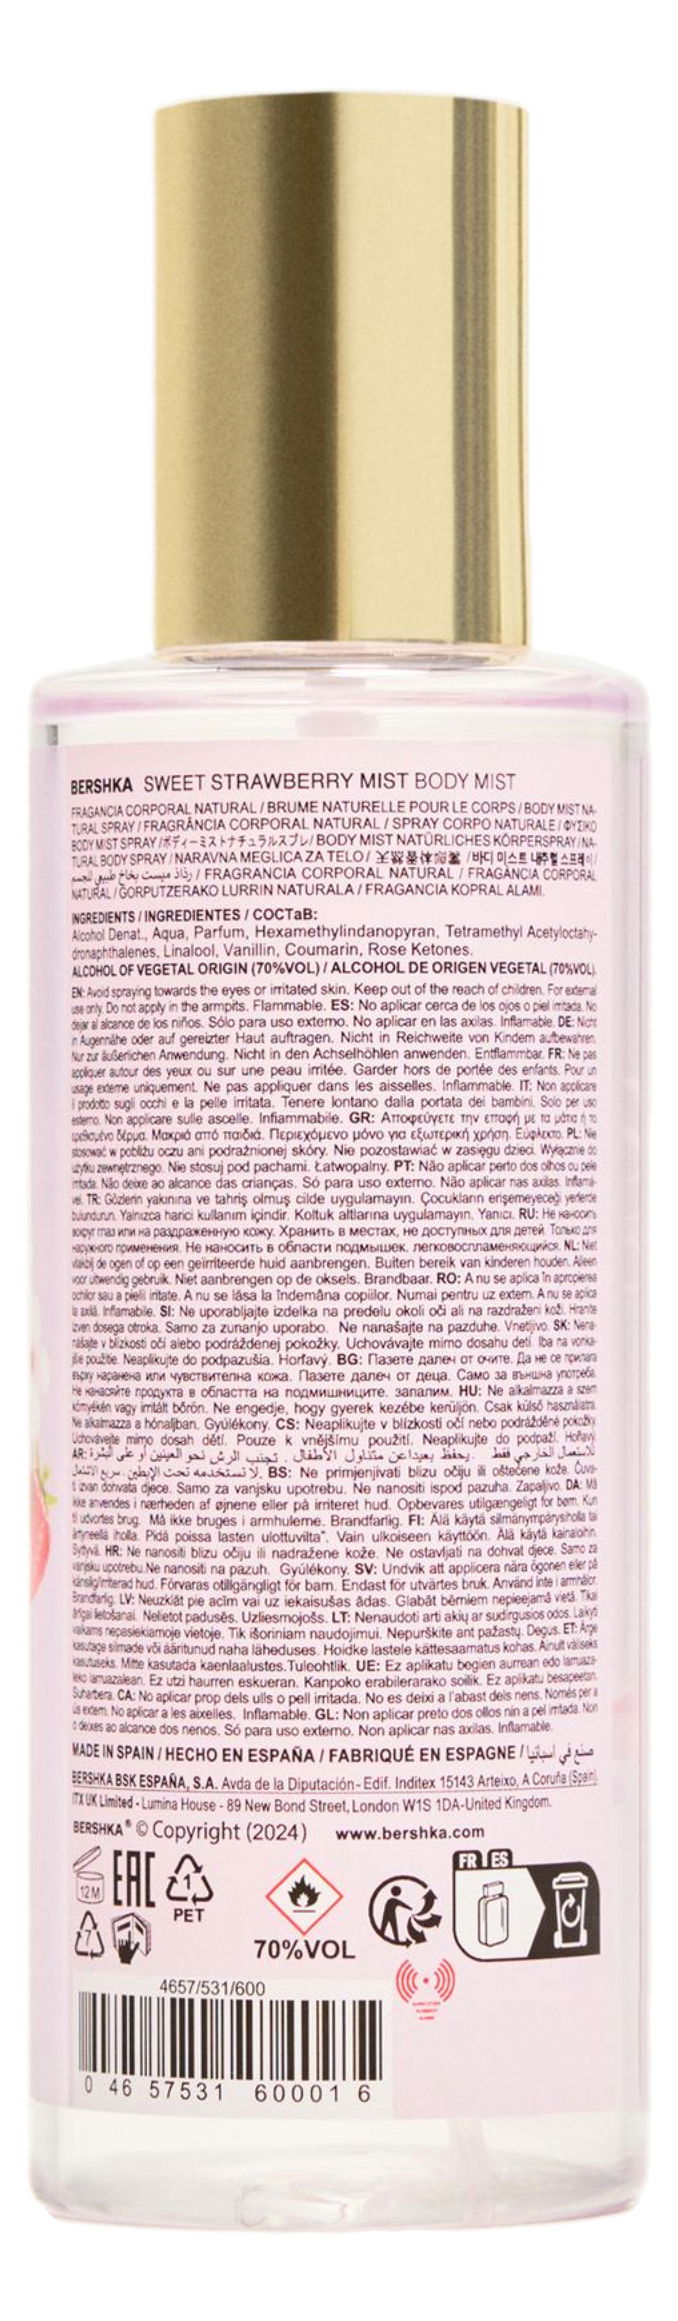 BERSHKA SWEET STRAWBERRY MIST BODY MIST
FRAGANCIA CORPORAL NATURAL / BRUME NATURELLE POUR LE CORPS / BODY MIST NA-
TURAL SPRAY / FRAGRÂNCIA CORPORAL NATURAL / SPRAY CORPO NATURALE / ΦΥΣΙΚΟ
BODY MIST SPRAY /ボディーミストナチュラルスプレ/ BODY MIST NATÜRLICHES KÖRPERSPRAY / NA-
TURAL BODY SPRAY / NARAVNA MEGLICA ZA TELO / /바디 미스트 내츄럴 스프레이/
رذاذ ميست بخاخ طبيعي للجسم / FRAGRANCIA CORPORAL NATURAL / FRAGÀNCIA CORPORAL
NATURAL / GORPUTZERAKO LURRIN NATURALA / FRAGANCIA KOPRAL ALAMI.
INGREDIENTS / INGREDIENTES / COCTaB:
Alcohol Denat., Aqua, Parfum, Hexamethylindanopyran, Tetramethyl Acetyloctahy-
dronaphthalenes, Linalool, Vanillin, Coumarin, Rose Ketones.
ALCOHOL OF VEGETAL ORIGIN (70%VOL) / ALCOHOL DE ORIGEN VEGETAL (70%VOL).
EN: Avoid spraying towards the eyes or irritated skin. Keep out of the reach of children. For external
use only. Do not apply in the armpits. Flammable. ES: No aplicar cerca de los ojos o piel irritada. No
dejar al alcance de los niños. Sólo para uso externo. No aplicar en las axilas. Inflamable. DE: Nicht
in Augennähe oder auf gereizter Haut auftragen. Nicht in Reichweite von Kindern aufbewahren.
Nur zur äußerlichen Anwendung. Nicht in den Achselhöhlen anwenden. Entflammbar. FR: Ne pas
appliquer autour des yeux ou sur une peau irritée. Garder hors de portée des enfants. Pour un
usage externe uniquement. Ne pas appliquer dans les aisselles. Inflammable. IT: Non applicare
il prodotto sugli occhi e la pelle irritata. Tenere lontano dalla portata dei bambini. Solo per uso
esterno. Non applicare sulle ascelle. Infiammabile. GR: Αποφεύγετε την επαφή με τα μάτια ή το
ερεθισμένο δέρμα. Μακριά από παιδιά. Περιεχόμενο μόνο για εξωτερική χρήση. Εύφλεκτο. PL: Nie
stosować w pobliżu oczu ani podrażnionej skóry. Nie pozostawiać w zasięgu dzieci. Wyłącznie do
użytku zewnętrznego. Nie stosuj pod pachami. Łatwopalny. PT: Não aplicar perto dos olhos ou pele
irritada. Não deixe ao alcance das crianças. Só para uso externo. Não aplicar nas axilas. Inflamá-
vel. TR: Gözlerin yakınına ve tahriş olmuş cilde uygulamayın. Çocukların erişemeyeceği yerlerde
bulundurun. Yalnızca harici kullanım içindir. Koltuk altlarına uygulamayın. Yanıcı. RU: Не наносить
вокруг глаз или на раздраженную кожу. Хранить в местах, не доступных для детей. Только для
наружного применения. Не наносить в области подмышек. легковоспламеняющийся. NL: Niet
vlakbij de ogen of op een geïrriteerde huid aanbrengen. Buiten bereik van kinderen houden. Alleen
voor uitwendig gebruik. Niet aanbrengen op de oksels. Brandbaar. RO: A nu se aplica în apropierea
ochilor sau a pielii iritate. A nu se lăsa la îndemâna copiilor. Numai pentru uz extern. A nu se aplica
la axilă. Inflamabile. SI: Ne uporabljajte izdelka na predelu okoli oči ali na razdraženi koži. Hranite
izven dosega otroka. Samo za zunanjo uporabo. Ne nanašajte na pazduhe. Vnetljivo. SK: Nena-
nášajte v blízkosti očí alebo podráždenej pokožky. Uchovávajte mimo dosahu detí. Iba na vonka-
jšie použitie. Neaplikujte do podpazušia. Horľavý. BG: Пазете далеч от очите. Да не се прилага
върху наранена или чувствителна кожа. Пазете далеч от деца. Само за външна употреба.
Не нанасяйте продукта в областта на подмишниците. запалим. HU: Ne alkalmazza a szem
környékén vagy irritált bőrön. Ne engedje, hogy gyerek kezébe kerüljön. Csak külső használatra.
Ne alkalmazza a hónaljban. Gyúlékony. CS: Neaplikujte v blízkosti očí nebo podrážděné pokožky.
Uchovávejte mimo dosah dětí. Pouze k vnějšímu použití. Neaplikujte do podpaží. Hořlavý.
AR: تجنب الرش نحو العينين أو على البشرة . يحفظ بعيدا عن متناول الأطفال . للاستعمال الخارجي فقط
لا تستخدمه تحت الإبطين. سريع الاشتعال. BS: Ne primjenjivati blizu očiju ili oštećene kože. Čuva-
t izvan donvata djece. Samo za vanjsku upotrebu. Ne nanositi ispod pazuha. Zapaljivo. DA: Må
ikke anvendes i nærheden af øjnene eller på irriteret hud. Opbevares utilgængeligt for børn. Kun
til udvortes brug. Må ikke bruges i armhulerne. Brandfarlig. FI: Älä käytä silmänympärysiholla tai
ärtyneellä iholla. Pidä poissa lasten ulottuvilta". Vain ulkoiseen käyttöön. Älä käytä kainaloihin.
Syttyvä. HR: Ne nanositi blizu očiju ili nadražene kože. Ne ostavljati na dohvat djece. Samo za
vanjsku upotrebu.Ne nanositi na pazuh. Gyúlékony. SV: Undvik att applicera nära ögonen eller på
känslig/irriterad hud. Förvaras otillgängligt för barn. Endast för utvärtes bruk. Använd inte i armhålor.
Brandfarlig. LV: Neuzklāt pie acīm vai uz iekaisušas ādas. Glabāt bērniem nepieejamā vietā. Tikai
ārīgai lietošanai. Nelietot padusēs. Uzliesmojošs. LT: Nenaudoti arti akių ar sudirgusios odos. Laikyti
vaikams nepasiekiamoje vietoje. Tik išoriniam naudojimui. Nepurškite ant pažastų. Degus. ET: Ärge
kasutage silmade või ärritunud naha läheduses. Hoidke lastele kättesaamatus kohas. Ainult väliseks
kasutuseks. Mitte kasutada kaenlaalustes.Tuleohtlik. UE: Ez aplikatu begien aurrean edo larruaza-
leko larruazalean. Ez utzi haurren eskueran. Kanpoko erabilerarako soilik. Ez aplikatu besapeetan.
Suharbera. CA: No aplicar prop dels ulls o pell irritada. No es deixi a l'abast dels nens. Només per a
ús extern. No aplicar a les aixelles. Inflamable. GL: Non aplicar preto dos ollos nin a pel irritada. Non
o deixes ao alcance dos nenos. Só para uso externo. Non aplicar nas axilas. Inflamable.
MADE IN SPAIN / HECHO EN ESPAÑA / FABRIQUÉ EN ESPAGNE / صنع في أسبانيا
BERSHKA BSK ESPAÑA, S.A. Avda de la Diputación - Edif. Inditex 15143 Arteixo, A Coruña (Spain).
ITX UK Limited - Lumina House - 89 New Bond Street, London W1S 1DA-United Kingdom.
BERSHKA® © Copyright (2024) www.bershka.com
FR ES
12 M EAC 1 PET
7
70%VOL
4657/531/600
0 46 57531 60001 6